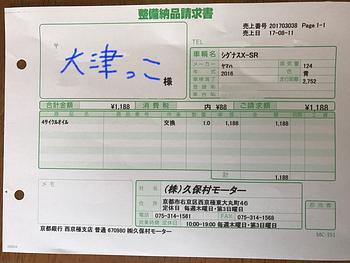 整備納品請求書
売上番号 201703038 Page 1-1
売上日 17-08-11
〒
TEL
大津っこ 様
車輌名 シグナスX-SR
メーカー ヤマハ 排気量 124
年式 2016 色 青
走行距離 2,752
合計金額 ¥1,188 消費税 内 ¥88 ご請求額 ¥1,188
4サイクルオイル 交換 1.0 1,188 1,188
計 1,188
メモ
(株)久保村モーター
京都市右京区西京極東大丸町46
定休日 毎週木曜日・第3日曜日
電話 075-314-1561 FAX 075-314-1568
営業時間 10:00-19:00 毎週木曜日・第3日曜日
担当者
京都銀行 西京極支店 普通 670980 ㈱久保村モーター
MC-351